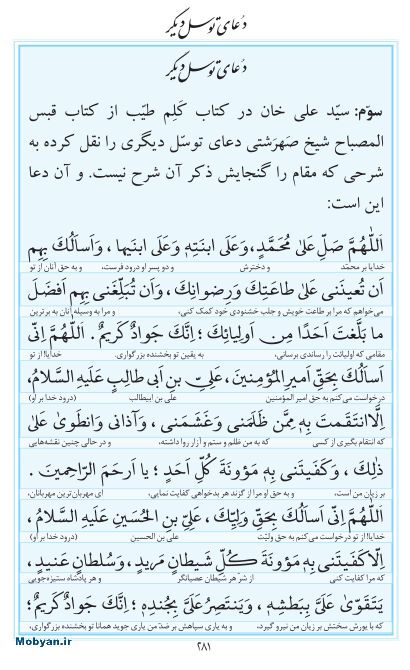 دُعای توسل دیگر
دُعای توسل دیگر
سوّم: سیّد علی خان در کتاب کَلِم طیّب از کتاب قبس
المصباح شیخ صَهرَشتی دعای توسّل دیگری را نقل کرده به
شرحی که مقام را گنجایش ذکر آن شرح نیست. و آن دعا
این است:
اَللّٰهُمَّ صَلِّ عَلیٰ مُحَمَّدٍ، وَعَلَی ابنَتِهِ وَعَلَی ابنَیها ، وَاَسأَلُكَ بِهِم
خدایا بر محمّد و دخترش و دو پسر او درود فرست، و به حق آنان از تو
اَن تُعینَنی عَلیٰ طاعَتِكَ وَرِضوانِكَ ، وَاَن تُبَلِّغَنی بِهِم اَفضَلَ
می‌خواهم که مرا بر طاعت خویش و جلب خشنودی خود کمک کنی، و مرا به وسیله آنان به برترین
ما بَلَّغتَ اَحَدًا مِن اَولِیائِكَ ؛ اِنَّكَ جَوادٌ كَریمٌ . اَللّٰهُمَّ اِنّی
مقامی که اولیائت را رساندی برسانی، به یقین تو بخشنده بزرگواری. خدایا! از تو
اَسأَلُكَ بِحَقِّ اَمیرِ المُؤمِنینَ ، عَلِیِّ بنِ اَبی طالِبٍ عَلَیهِ السَّلامُ،
درخواست می‌کنم به حق امیر المؤمنین علی بن ابیطالب (درود خدا بر او)
اِلَّا انتَقَمتَ بِهِ مِمَّن ظَلَمَنی وَغَشَمَنی ، وَآذانی وَانطَویٰ عَلیٰ
که انتقام بگیری از کسی که به من ظلم و ستم و آزار روا داشته، و در حالی چنین نقشه‌هایی
ذٰلِكَ ، وَكَفَیتَنی بِهِ مَؤونَةَ كُلِّ اَحَدٍ ؛ یا اَرحَمَ الرّاحِمینَ .
بر زیان من است، و به حق او مرا از گزند هر بدخواهی کفایت نمایی، ای مهربان‌ترین مهربانان،
اَللّٰهُمَّ اِنّی اَسأَلُكَ بِحَقِّ وَلِیِّكَ ، عَلِیِّ بنِ الحُسَینِ عَلَیهِ السَّلامُ ،
خدایا! از تو درخواست می‌کنم به حق ولیّت علی بن الحسین (درود خدا بر او)
اِلّا كَفَیتَنی بِهِ مَؤونَةَ كُلِّ شَیطانٍ مَریدٍ ، وَسُلطانٍ عَنیدٍ ،
که مرا کفایت کنی از شر هر شیطان عصیانگر و هر پادشاه ستیزه‌جویی
یَتَقَوّیٰ عَلَیَّ بِبَطشِهِ ، وَیَنتَصِرُ عَلَیَّ بِجُندِهِ ؛ اِنَّكَ جَوادٌ كَریمٌ؛
که با یورش سختش بر زیان من نیرو گیرد، و به یاری سپاهش بر ضدّ من یاری جوید همانا تو بخشنده بزرگواری،
٢٨١
Mobyan.ir